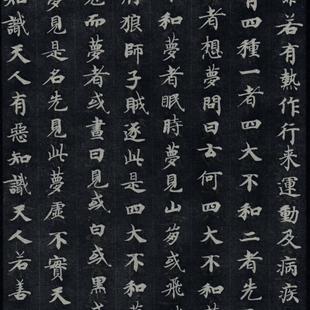 若有熱作行来運動及病疾
有四種一者四大不和二者先
者想夢問曰云何四大不和
不和夢者眠時夢見山崩或飛
狼師子賊逐此是四大不和夢
見而夢者或晝日見或白或黑或
夢見是名先見此夢虛不實天
知識天人有惡知識天人若善